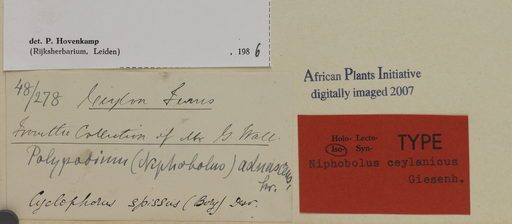 det. P. Hovenkamp
(Rijksherbarium, Leiden) , 1986
48/278 Ceylon Ferns
From the Collection of Mr G Wall
Polypodium (Niphobolus) adnascens,
Cyclophorus spissus (Bory) Desv.
African Plants Initiative
digitally imaged 2007
Holo- Lecto-
Iso- Syn- TYPE
Niphobolus ceylanicus
Giesenh.